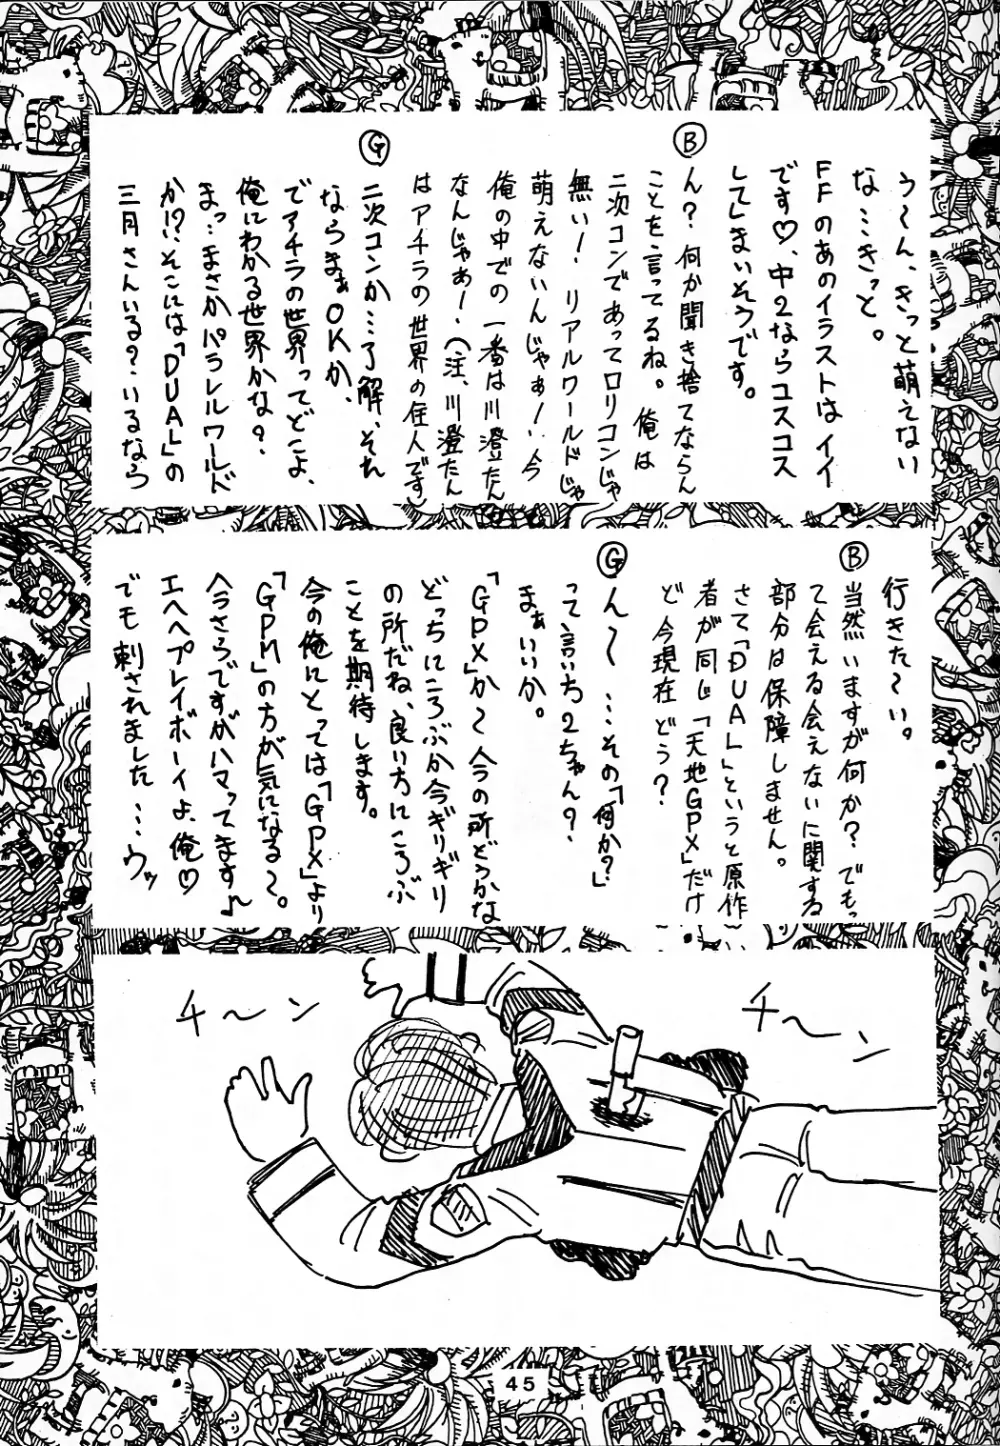 う〜ん、きっと萌えない
な…きっと。
FFのあのイラストはイイ
です♡、中2ならコスコス
してしまいそうです。
Ⓑ
ん？何か聞き捨てならん
ことを言ってるね。俺は
二次コンであってロリコンじゃ
無い！リアルワールドじゃ
萌えないんじゃぁ！、今
俺の中での一番は川澄たん
なんじゃぁー！（注、川澄たん
はアチラの世界の住人です）
Ⓖ
二次コンか…了解、それ
ならまぁOKか、
でアチラの世界ってどこよ、
俺にわかる世界かな？
まっ…まさかパラレルワールド
か!?、そこには「DUAL」の
三月さんいる？いるなら
行きた〜い。
Ⓑ
当然いますが何か？でもっ
て会える会えないに関する
部分は保障しません。
さて「DUAL」というと原作
者が同じ「天地GPX」だけ
ど今現在どう？
Ⓖ
ん〜…その「何か？」
って言い方2ちゃん？
まぁいいか。
「GPX」か〜今の所どうかな
どっちにころぶか今ギリギリ
の所だね、良い方にころぶ
ことを期待します。
今の俺にとっては「GPX」より
「GPM」の方が気になる〜。
今さらですがハマってます♪
エヘヘプレイボーイよ、俺♡
でも刺されました…ウッ
チ〜ン
チ〜ン
45